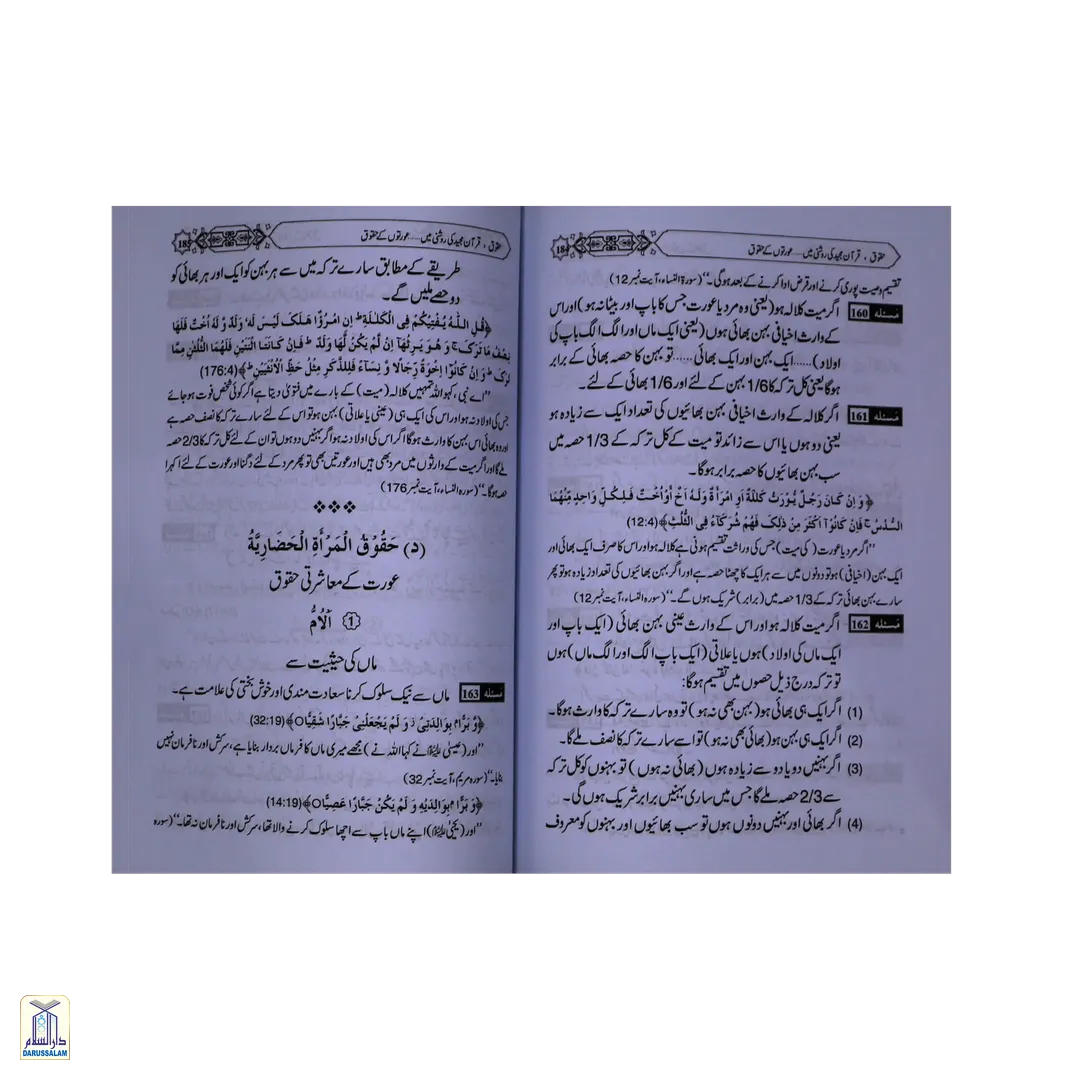 حقوق ، قرآن مجید کی روشنی میں ..... عورتوں کے حقوق
184
تقسیم وصیت پوری کرنے اور قرض ادا کرنے کے بعد ہوگی۔“ (سورۃ النساء، آیت نمبر 12)
مَسئلہ 160 اگر میت کلالہ ہو (یعنی وہ مرد یا عورت جس کا باپ اور بیٹا نہ ہو) اور اس
کے وارث اخیافی بہن بھائی ہوں (یعنی ایک ماں اور الگ الگ باپ کی
اولاد) ...... ایک بہن اور ایک بھائی ...... تو بہن کا حصہ بھائی کے برابر
ہوگا یعنی کل ترکہ کا 1/6 بہن کے لئے اور 1/6 بھائی کے لئے۔
مَسئلہ 161 اگر کلالہ کے وارث اخیافی بہن بھائیوں کی تعداد ایک سے زیادہ ہو
یعنی دو ہوں یا اس سے زائد تو میت کے کل ترکہ کے 1/3 حصہ میں
سب بہن بھائیوں کا حصہ برابر ہوگا۔
﴿ وَ اِنْ كَانَ رَجُلٌ يُّوْرَثُ كَلٰلَةً اَوِ امْرَاَةٌ وَّلَهٗ اَخٌ اَوْ اُخْتٌ فَلِكُلِّ وَاحِدٍ مِّنْهُمَا
السُّدُسُ ۚ فَاِنْ كَانُوْٓا اَكْثَرَ مِنْ ذٰلِكَ فَهُمْ شُرَكَآءُ فِى الثُّلُثِ﴾ (12:4)
”اگر مرد یا عورت (کی میت) جس کی وراثت تقسیم ہونی ہے کلالہ ہو اور اس کا صرف ایک بھائی اور
ایک بہن (اخیافی) ہو تو دونوں میں سے ہر ایک کا چھٹا حصہ ہے اور اگر بہن بھائیوں کی تعداد زیادہ ہو تو پھر
سارے بہن بھائی ترکہ کے 1/3 حصہ میں (برابر) شریک ہوں گے۔“ (سورہ النساء، آیت نمبر 12)
مَسئلہ 162 اگر میت کلالہ ہو اور اس کے وارث عینی بہن بھائی (ایک باپ اور
ایک ماں کی اولاد) ہوں یا علاتی (ایک باپ الگ اور الگ ماں) ہوں
تو ترکہ درج ذیل حصوں میں تقسیم ہوگا:
(1) اگر ایک ہی بھائی ہو (بہن بھی نہ ہو) تو وہ سارے ترکہ کا وارث ہوگا۔
(2) اگر ایک ہی بہن ہو (بھائی بھی نہ ہو) تو اسے سارے ترکہ کا نصف ملے گا۔
(3) اگر بہنیں دو یا دو سے زیادہ ہوں (بھائی نہ ہوں) تو بہنوں کو کل ترکہ
سے 2/3 حصہ ملے گا جس میں ساری بہنیں برابر شریک ہوں گی۔
(4) اگر بھائی اور بہنیں دونوں ہوں تو سب بھائیوں اور بہنوں کو معروف
حقوق ، قرآن مجید کی روشنی میں ..... عورتوں کے حقوق
185
طریقے کے مطابق سارے ترکہ میں سے ہر بہن کو ایک اور ہر بھائی کو
دو حصے ملیں گے۔
﴿قُلِ اللّٰهُ يُفْتِيْكُمْ فِى الْكَلٰلَةِ ؕ اِنِ امْرُؤٌا هَلَكَ لَيْسَ لَهٗ وَلَدٌ وَّ لَهٗٓ اُخْتٌ فَلَهَا
نِصْفُ مَا تَرَكَ ۚ وَ هُوَ يَرِثُهَآ اِنْ لَّمْ يَكُنْ لَّهَا وَلَدٌ ؕ فَاِنْ كَانَتَا اثْنَتَيْنِ فَلَهُمَا الثُّلُثٰنِ مِمَّا
تَرَكَ ؕ وَ اِنْ كَانُوْٓا اِخْوَةً رِّجَالًا وَّ نِسَآءً فَلِلذَّكَرِ مِثْلُ حَظِّ الْاُنْثَيَيْنِ ؕ﴾ (176:4)
”اے نبی، کہو اللہ تمہیں کلالہ (میت) کے بارے میں فتویٰ دیتا ہے اگر کوئی شخص فوت ہو جائے
جس کی اولاد نہ ہو اور اس کی ایک ہی (عینی یا علاتی) بہن ہو تو اس کے لئے سارے ترکہ کا نصف حصہ ہے
اور وہ بھائی اس بہن کا وارث ہوگا اگر اس کی اولاد نہ ہو اگر بہنیں دو ہوں تو ان کے لئے کل ترکہ کا 2/3 حصہ
ملے گا اور اگر میت کے وارثوں میں مرد بھی ہیں اور عورتیں بھی تو پھر مرد کے لئے دگنا اور عورت کے لئے اکہرا
حصہ ہوگا۔“ (سورہ النساء، آیت نمبر 176)
(د) حَقُوْقُ الْمَرْأَةِ الْحَضَارِيَّةُ
عورت کے معاشرتی حقوق
1 اَلْاُمُّ
ماں کی حیثیت سے
مَسئلہ 163 ماں سے نیک سلوک کرنا سعادت مندی اور خوش بختی کی علامت ہے۔
﴿وَّ بَرًّا ۢ بِوَالِدَتِىْ ۡ وَ لَمْ يَجْعَلْنِىْ جَبَّارًا شَقِيًّا○﴾ (32:19)
”اور (عیسیٰ علیہ السلام نے کہا اللہ نے) مجھے میری ماں کا فرماں بردار بنایا ہے، سرکش اور نافرمان نہیں
بنایا۔“ (سورہ مریم، آیت نمبر 32)
﴿وَّ بَرًّا ۢ بِوَالِدَيْهِ وَ لَمْ يَكُنْ جَبَّارًا عَصِيًّا○﴾ (14:19)
”اور (یحییٰ علیہ السلام) اپنے ماں باپ سے اچھا سلوک کرنے والا تھا، سرکش اور نافرمان نہ تھا۔“ (سورہ
دارالسلام
DARUSSALAM